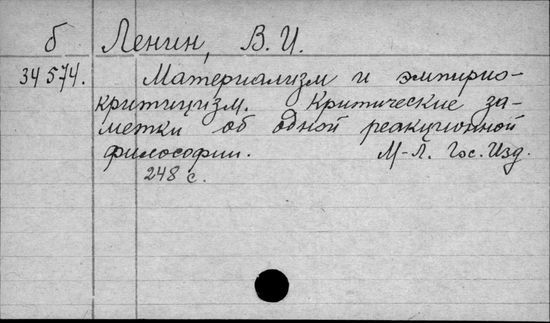 б Ленин, В. И.
34574. Материализм и эмпирио-
критицизм. Критические за-
метки об одной реакционной
философии. М-Л. Гос. Изд.
248 с.